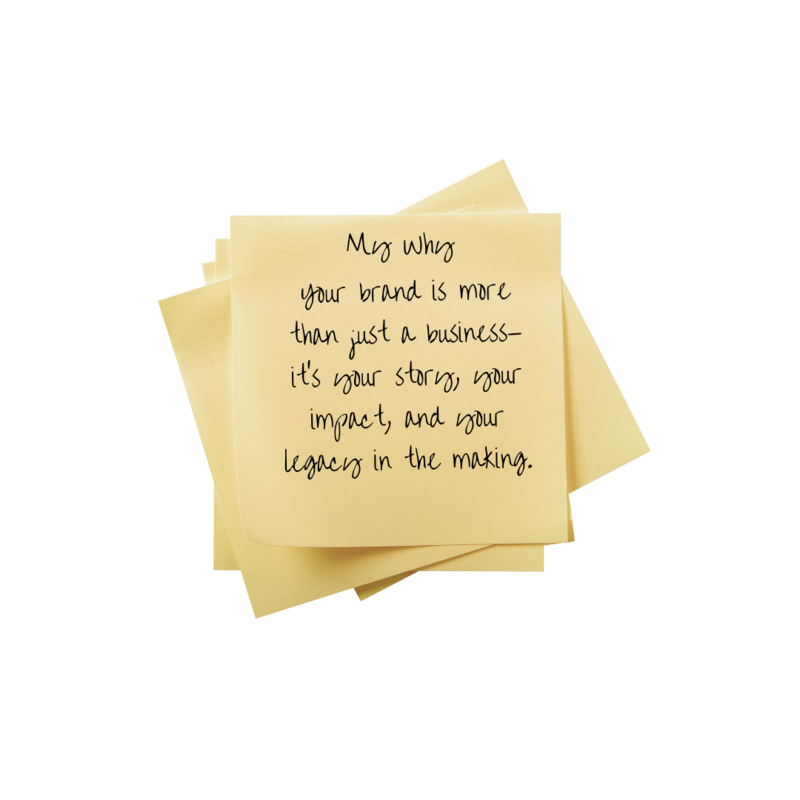 My Why
your brand is more
than just a business–
it's your story, your
impact, and your
legacy in the making.